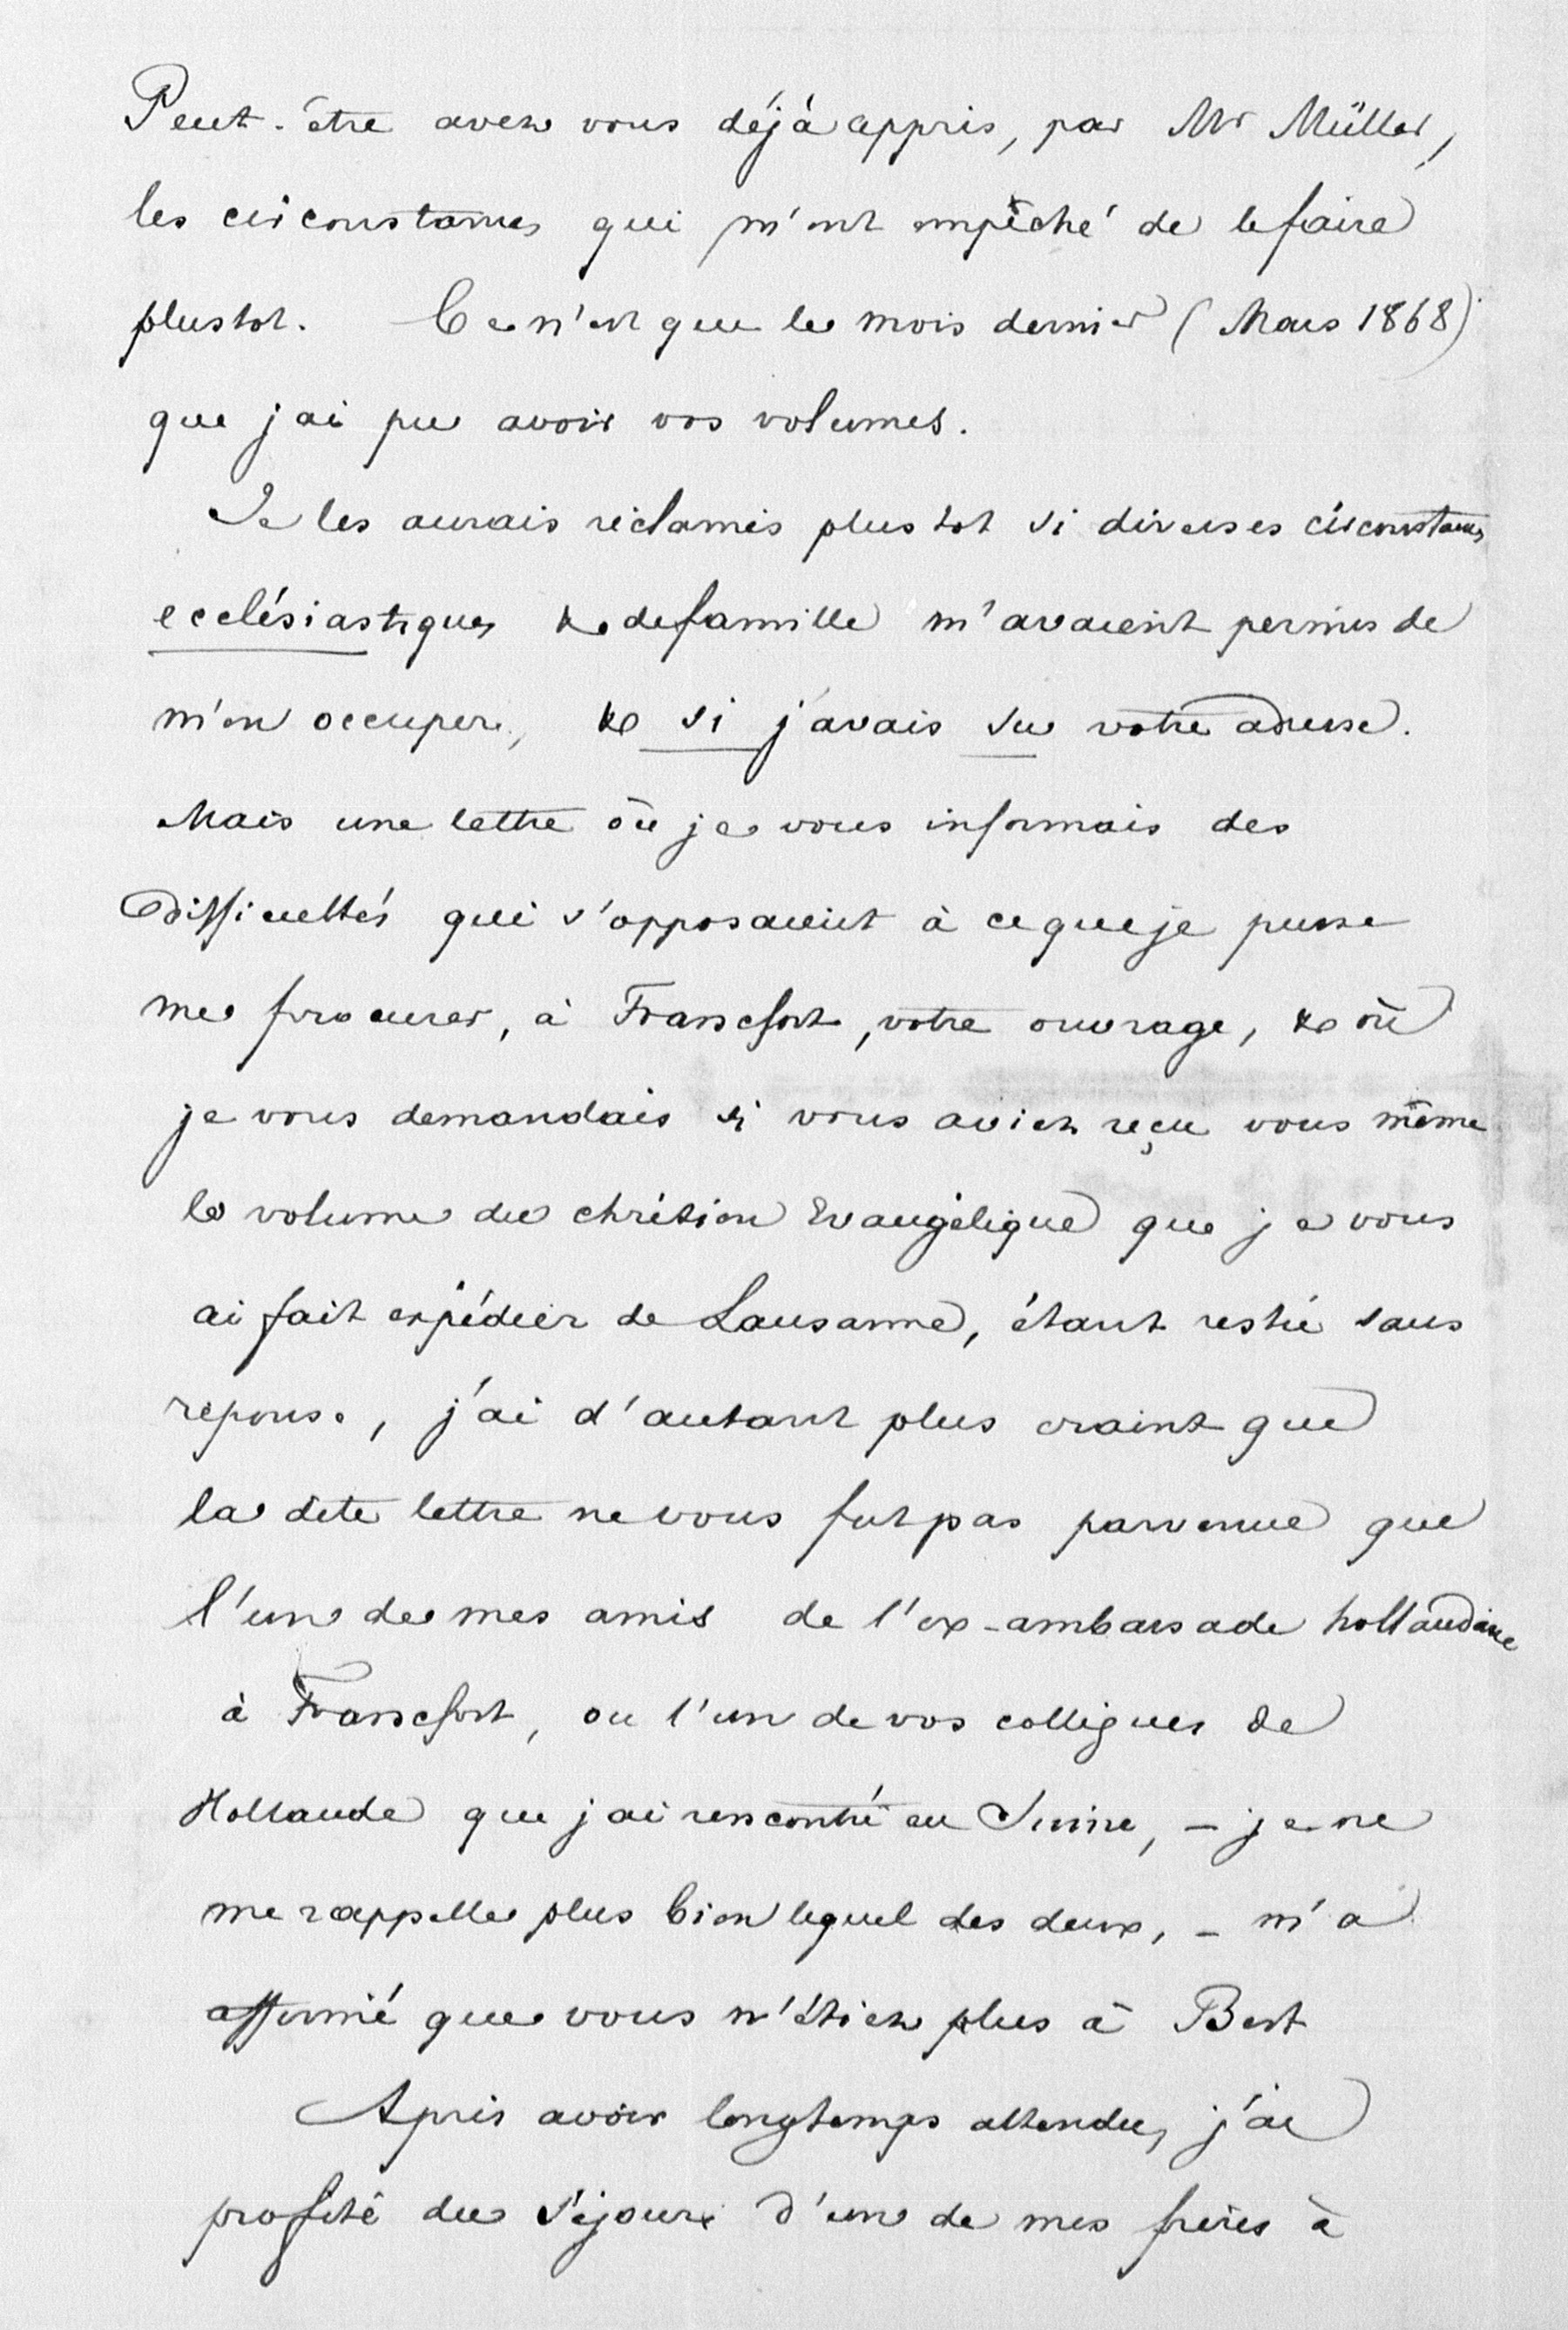 Peut-être avez vous déjà appris, par Mr Müller,
les circonstances qui m'ont empêché de le faire
plustot. Ce n'est que le mois dernier (Mars 1868)
que j'ai pu avoir vos volumes.
Je les aurais réclamés plustot si diverses circonstances
ecclésiastiques & de famille m'avaient permis de
m'en occuper, & si j'avais su votre adresse.
Mais une lettre où je vous informais des
difficultés qui s'opposaient à ce que je pusse
me procurer, à Francfort, votre ouvrage, & où
je vous demandais si vous aviez reçu vous même
le volume du chrétien Evangélique que je vous
ai fait expédier de Lausanne, étant restée sans
réponse, j'ai d'autant plus craint que
la dite lettre ne vous fut pas parvenue que
l'un de mes amis de l'ex-ambassade hollandaise
à Francfort, ou l'un de vos collègues de
Hollande que j'ai rencontré en Suisse, – je ne
me rappelle plus bien lequel des deux, – m'a
affirmé que vous n'étiez plus à Best
Après avoir longtemps attendu, j'ai
profité du séjour d'un de mes frères à